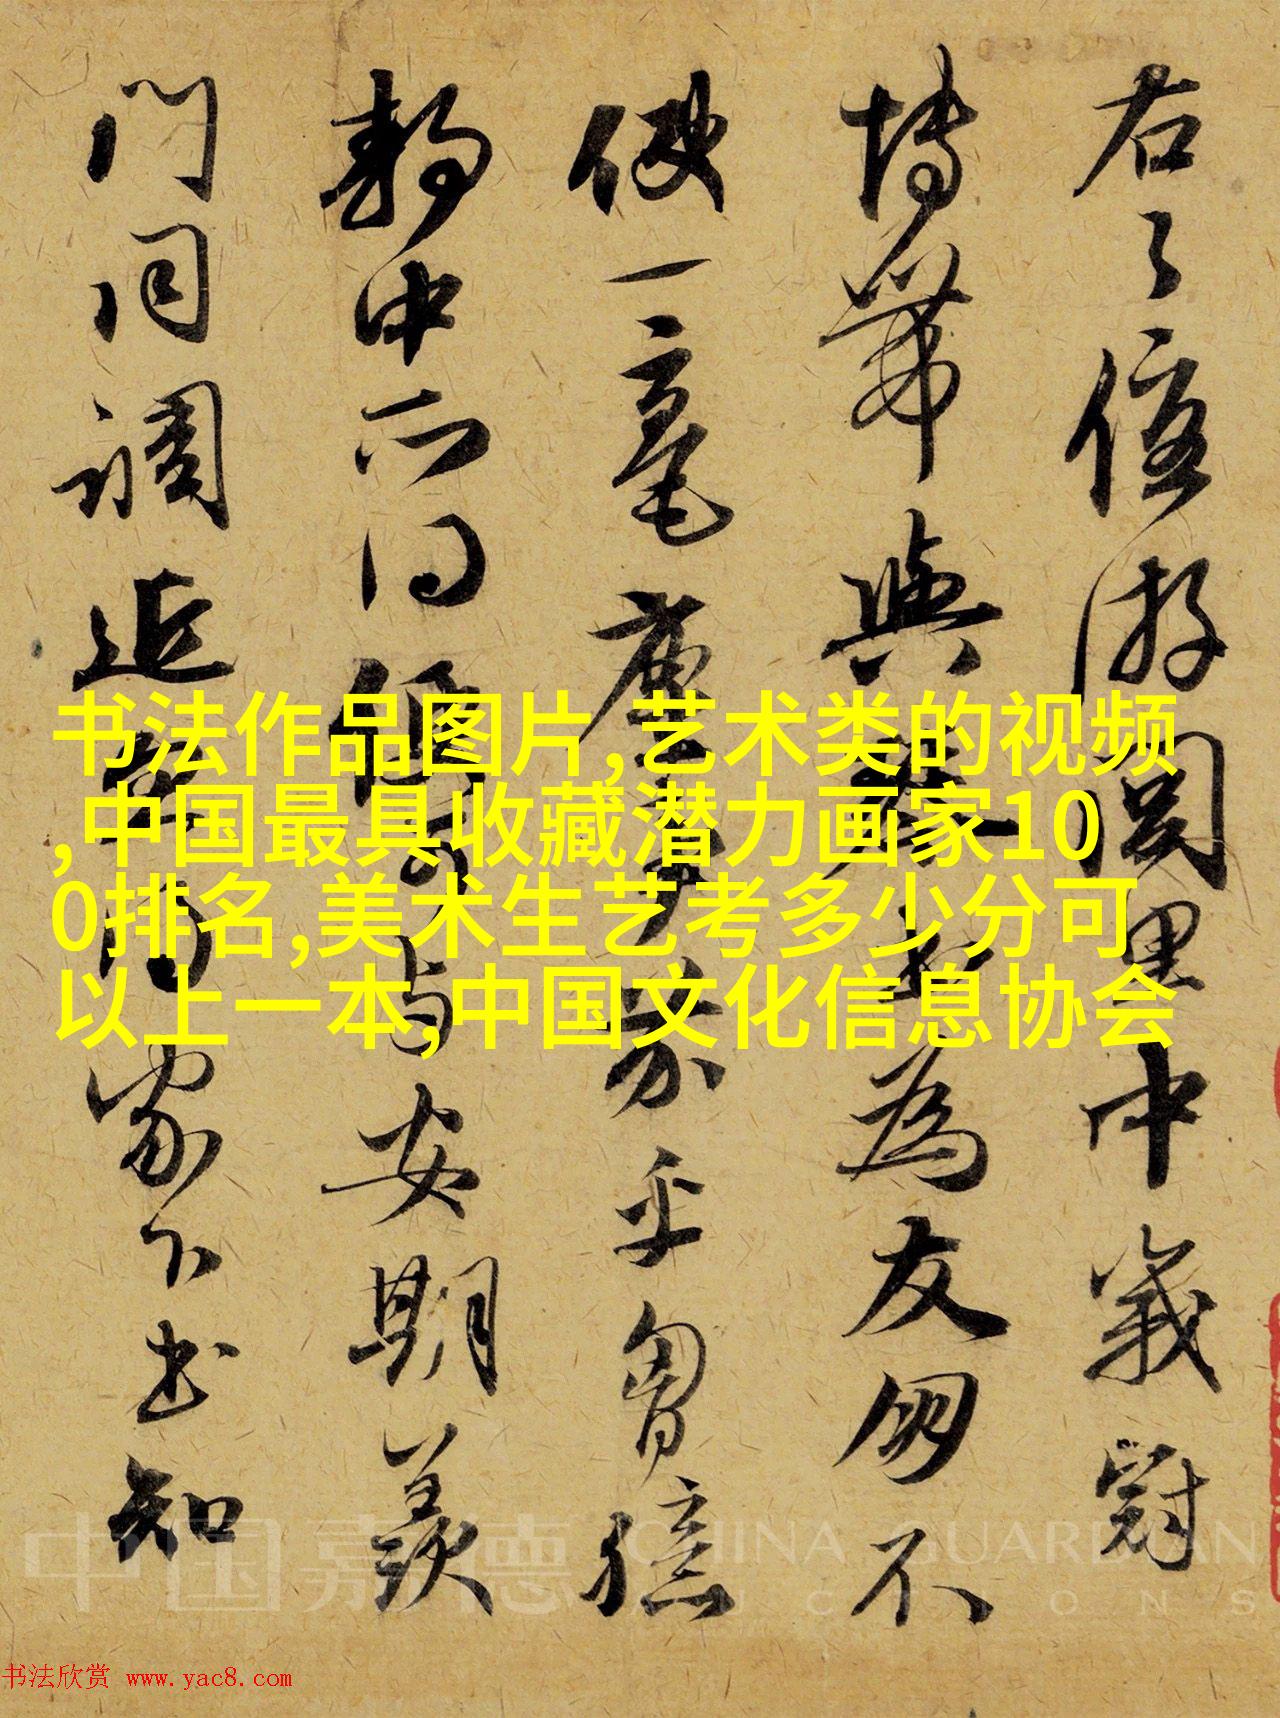 右之优游闾里中峩冠
博带與琴書為友例不
使一毫塵事芥乎胷臆
静中所得便可与安期羡
門同調追
家下士知
书法作品图片,艺术类的视频
,中国最具收藏潜力画家10
0排名,美术生艺考多少分可
以上一本,中国文化信息协会
中国嘉德 CHINA GUARDIAN
AUCTIONS
书法欣赏 www.yac8.com